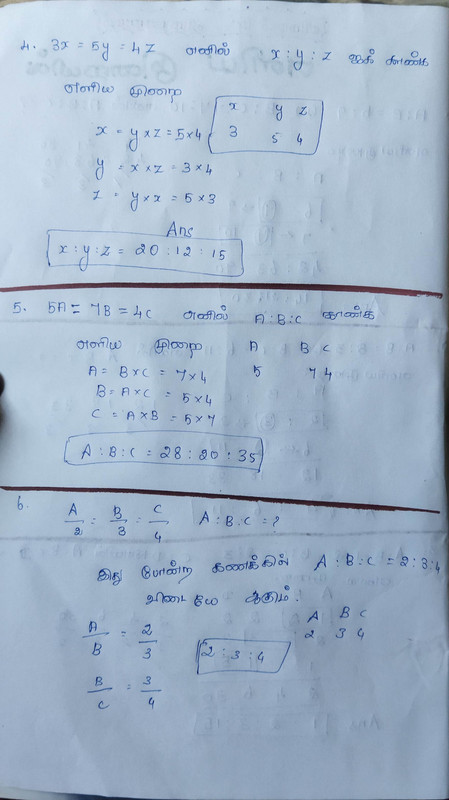 4. 3x = 5y = 4z எனில் x : y : z ஐக் காண்க
எளிய முறை
x y z
3 5 4
x = y x z = 5 x 4
y = x x z = 3 x 4
z = y x x = 5 x 3
Ans
x : y : z = 20 : 12 : 15
5. 5A = 7B = 4C எனில் A : B : C காண்க
எளிய முறை A B C
A = B x C = 7 x 4 5 7 4
B = A x C = 5 x 4
C = A x B = 5 x 7
A : B : C = 28 : 20 : 35
6.
A/2 = B/3 = C/4 A : B : C = ?
இது போன்ற கணக்கில் A : B : C = 2 : 3 : 4
விடையே ஆகும்.
A B C
2 3 4
A/B = 2/3
2 : 3 : 4
B/C = 3/4